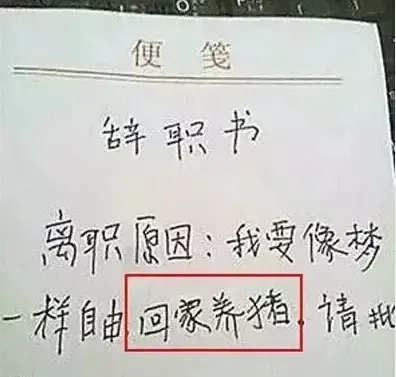 便 笺
辞职书
离职原因：我要像梦
一样自由，回家养猪。请批